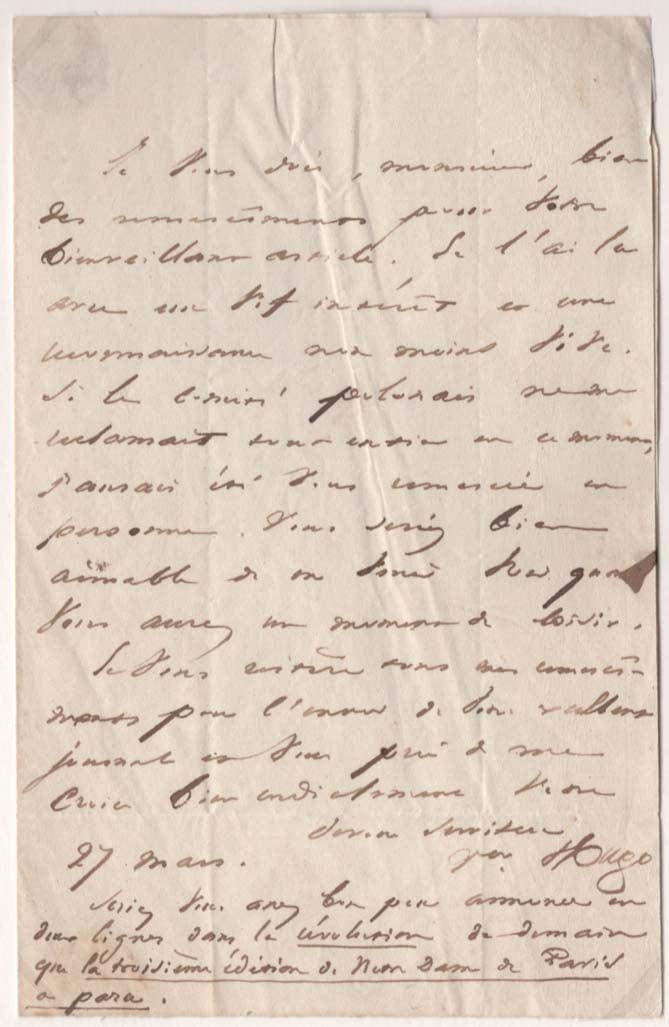 Je vous dois, monsieur, bien
des remerciements pour votre
bienveillant article. Je l'ai lu
avec un vif intérêt et une
reconnaissance non moins vive.
Si le comité polonais ne me
réclamait tout entier en ce moment,
j'aurais été vous remercier en
personne. Vous seriez bien
aimable de venir me voir quand
vous aurez un moment de loisir.
Je vous réitère tous mes remercie-
ments pour l'envoi de votre excellent
journal et vous prie de me
croire bien cordialement votre
dévoué serviteur
27 mars. Vor Hugo
Seriez vous assez bon pour annoncer en
deux lignes dans la révolution de demain
que la troisième édition de Notre Dame de Paris
a paru.